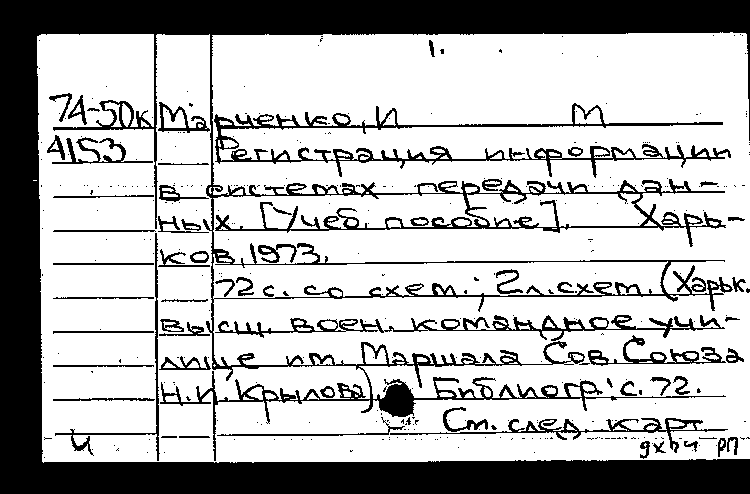 1.
74-50к Марченко, И М
4153 Регистрация информации
в системах передачи дан-
ных. [Учеб. пособие]. Харь-
ков, 1973.
72 с. со схем.; 2 л. схем. (Харьк.
высш. воен. командное учи-
лище им. Маршала Сов. Союза
Н.И. Крылова). Библиогр.: с. 72.
См. след. карт
ч РП